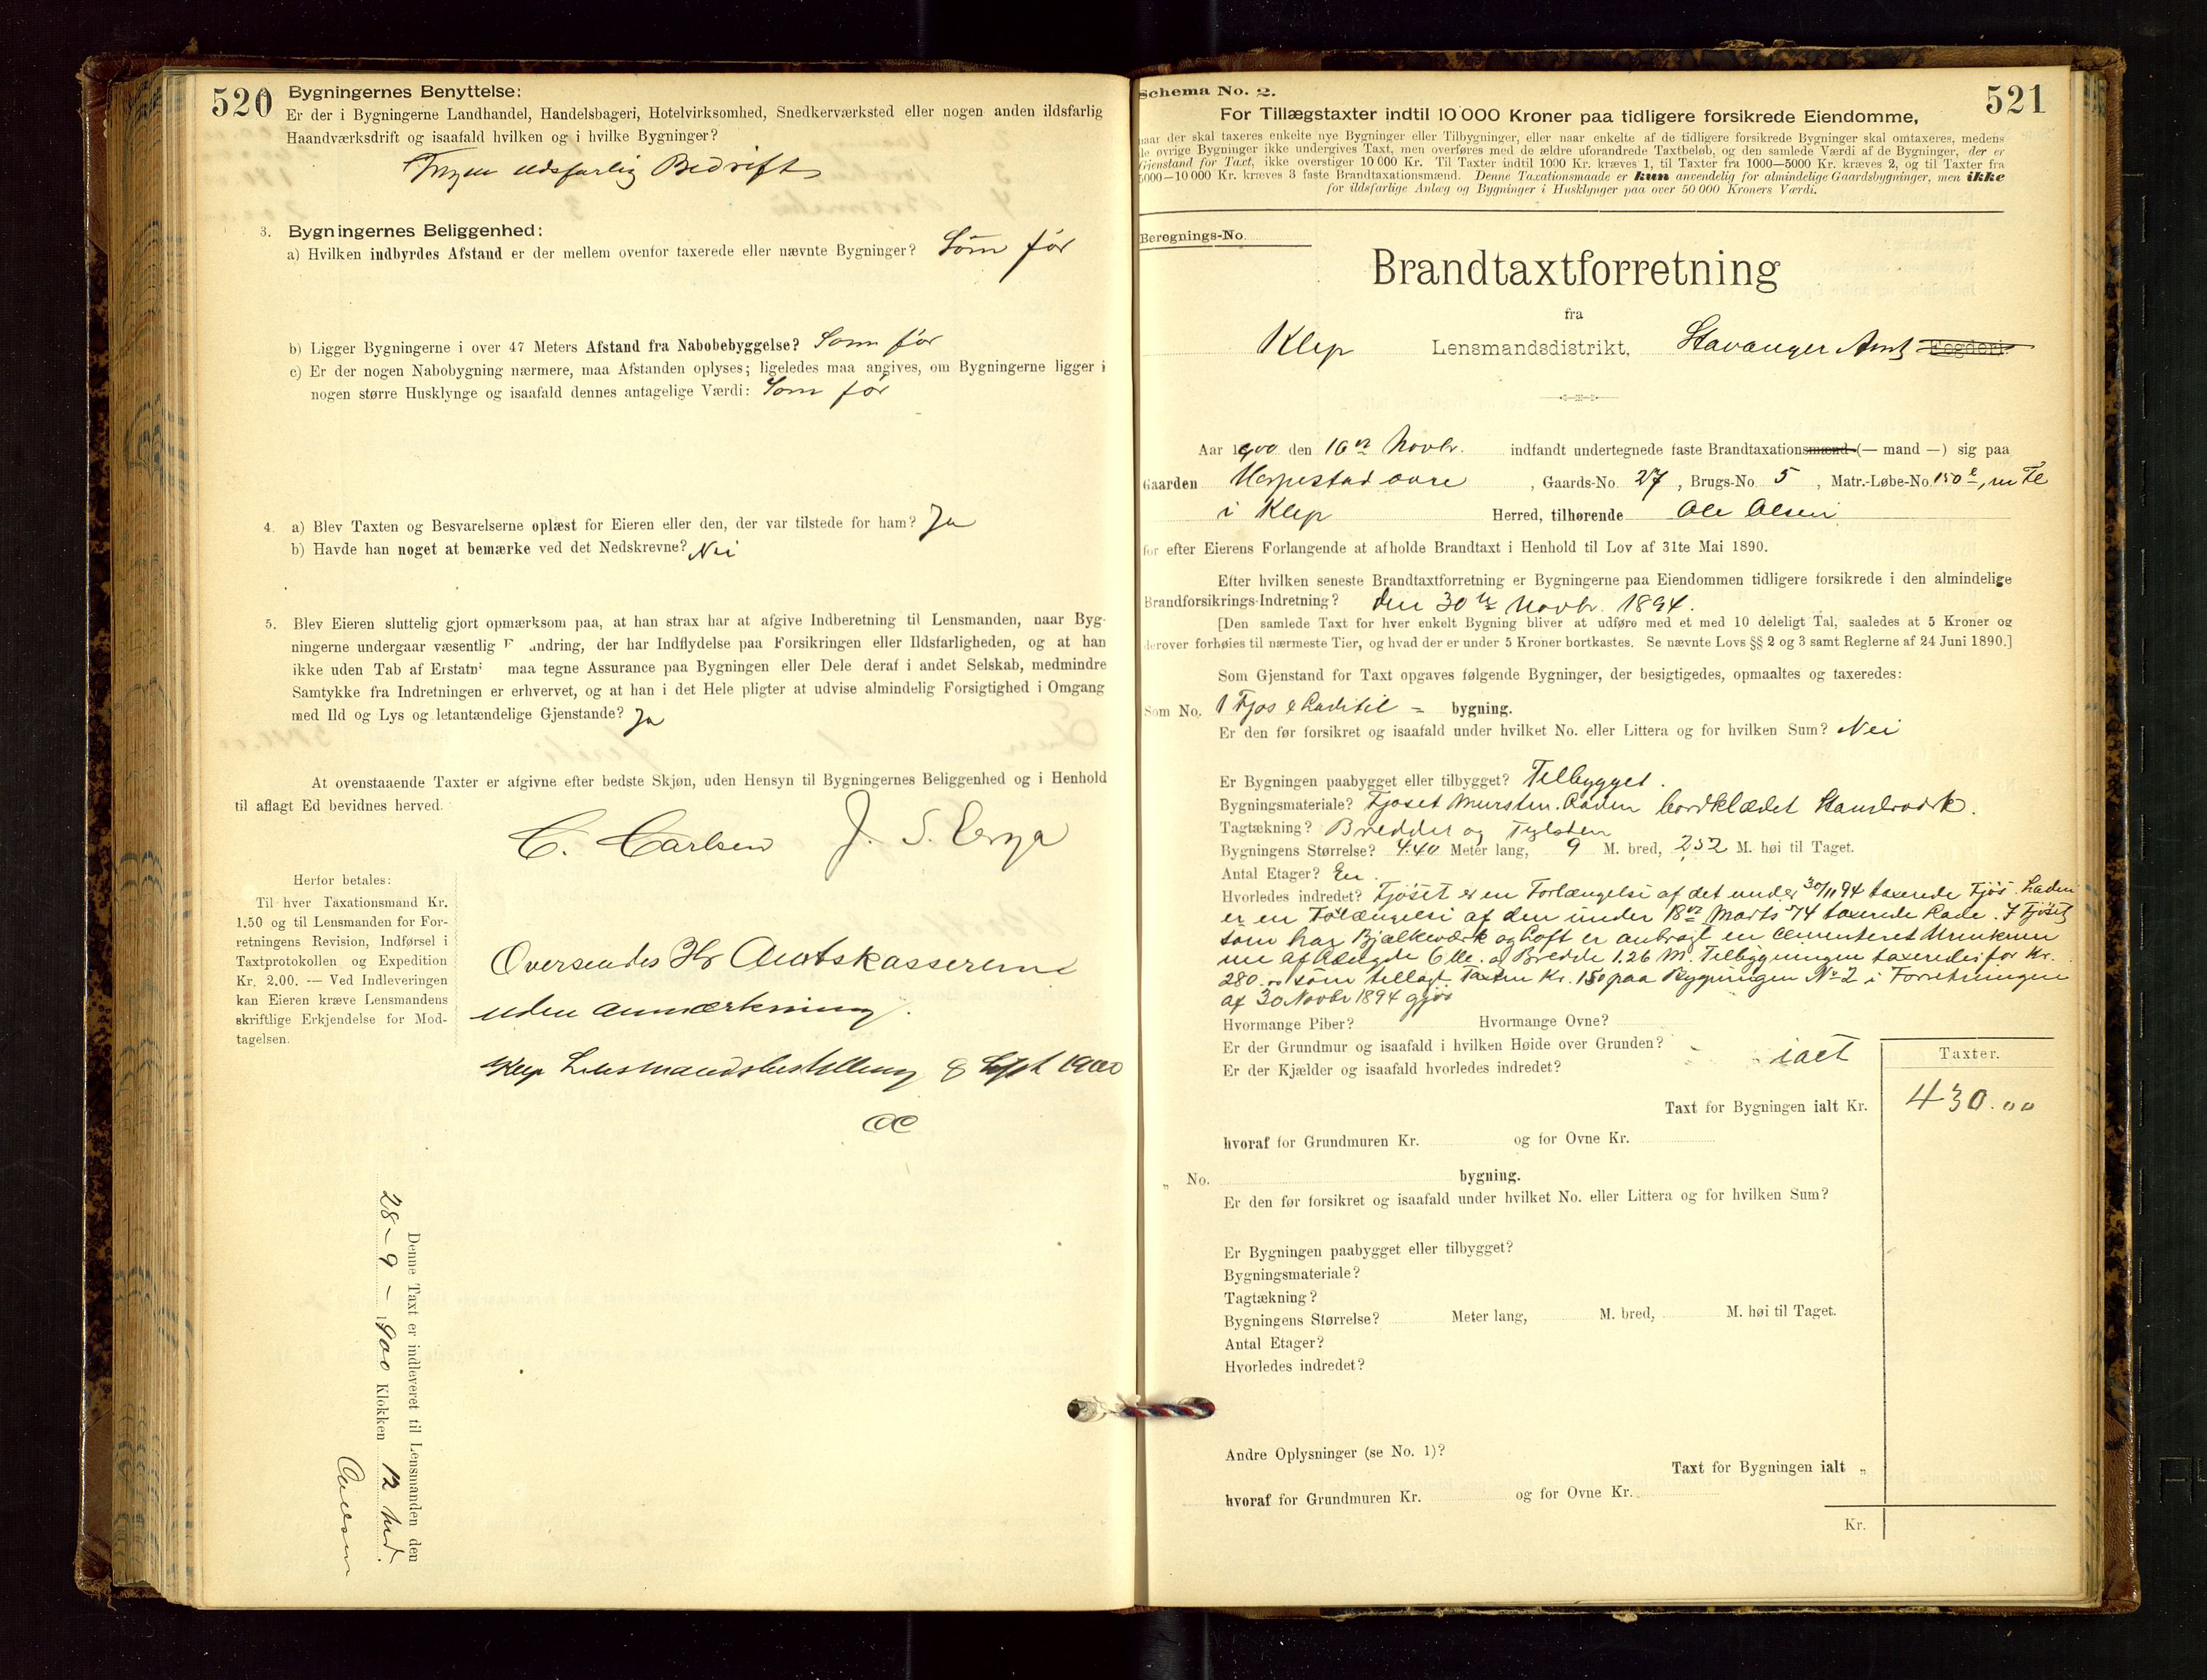 520
Bygningernes Benyttelse:
Er der i Bygningerne Landhandel, Handelsbageri, Hotelvirksomhed, Snedkerværksted eller nogen anden ildsfarlig
Haandværksdrift og isaafald hvilken og i hvilke Bygninger?
Ingen ildsfarlig Bedrift
3. Bygningernes Beliggenhed:
a) Hvilken indbyrdes Afstand er der mellem ovenfor taxerede eller nævnte Bygninger? Som før
b) Ligger Bygningerne i over 47 Meters Afstand fra Nabobebyggelse? Som før
c) Er der nogen Nabobygning nærmere, maa Afstanden oplyses; ligeledes maa angives, om Bygningerne ligger i
nogen større Husklynge og isaafald dennes antagelige Værdi: Som før
4. a) Blev Taxten og Besvarelserne oplæst for Eieren eller den, der var tilstede for ham? Ja
b) Havde han noget at bemærke ved det Nedskrevne? Nei
5. Blev Eieren sluttelig gjort opmærksom paa, at han strax har at afgive Indberetning til Lensmanden, naar Byg-
ningerne undergaar væsentlig F andring, der har Indflydelse paa Forsikringen eller Ildsfarligheden, og at han
ikke uden Tab af Erstatn maa tegne Assurance paa Bygningen eller Dele deraf i andet Selskab, medmindre
Samtykke fra Indretningen er erhvervet, og at han i det Hele pligter at udvise almindelig Forsigtighed i Omgang
med Ild og Lys og letantændelige Gjenstande? Ja
At ovenstaaende Taxter er afgivne efter bedste Skjøn, uden Hensyn til Bygningernes Beliggenhed og i Henhold
til aflagt Ed bevidnes herved.
C. Carlsen J. S. Erga
Herfor betales:
Til hver Taxationsmand Kr.
1.50 og til Lensmanden for For-
retningens Revision, Indførsel i
Taxtprotokollen og Expedition
Kr. 2.00. — Ved Indleveringen
kan Eieren kræve Lensmandens
skriftlige Erkjendelse for Mod-
tagelsen.
Oversendes Hr Amtskassereren
uden anmærkning.
Klep Lensmandsbestilling 8 Sept 1900
Denne Taxt er indleveret til Lensmanden den
28 - 9 - 1900 Klokken 12 Md.
521
Schema No. 2.
For Tillægstaxter indtil 10 000 Kroner paa tidligere forsikrede Eiendomme,
naar der skal taxeres enkelte nye Bygninger eller Tilbygninger, eller naar enkelte af de tidligere forsikrede Bygninger skal omtaxeres, medens
de øvrige Bygninger ikke undergives Taxt, men overføres med de ældre uforandrede Taxtbeløb, og den samlede Værdi af de Bygninger, der er
Gjenstand for Taxt, ikke overstiger 10 000 Kr. Til Taxter indtil 1000 Kr. kræves 1, til Taxter fra 1000—5000 Kr. kræves 2, og til Taxter fra
5000—10 000 Kr. kræves 3 faste Brandtaxationsmænd. Denne Taxationsmaade er kun anvendelig for almindelige Gaardsbygninger, men ikke
for ildsfarlige Anlæg og Bygninger i Husklynger paa over 50 000 Kroners Værdi.
Beregnings-No.
Brandtaxtforretning
fra
Klep Lensmandsdistrikt, Stavanger Amt Fogderi.
Aar 1900 den 16de Novbr. indfandt undertegnede faste Brandtaxationsmænd (— mand —) sig paa
Gaarden øvre , Gaards-No. 27, Brugs-No. 5, Matr.-Løbe-No. 150
i Klep Herred, tilhørende Ole Olsen
for efter Eierens Forlangende at afholde Brandtaxt i Henhold til Lov af 31te Mai 1890.
Efter hvilken seneste Brandtaxtforretning er Bygningerne paa Eiendommen tidligere forsikrede i den almindelige
Brandforsikrings-Indretning? den 30te Novbr. 1894.
[Den samlede Taxt for hver enkelt Bygning bliver at udføre med et med 10 deleligt Tal, saaledes at 5 Kroner og
derover forhøies til nærmeste Tier, og hvad der er under 5 Kroner bortkastes. Se nævnte Lovs §§ 2 og 3 samt Reglerne af 24 Juni 1890.]
Som Gjenstand for Taxt opgaves følgende Bygninger, der besigtigedes, opmaaltes og taxeredes:
Som No. 1 Fjøs & Ladetil = bygning.
Er den før forsikret og isaafald under hvilket No. eller Littera og for hvilken Sum? Nei
Er Bygningen paabygget eller tilbygget? Tilbygget.
Bygningsmateriale? Fjøset Mursten. Laden bordklædet Standværk.
Tagtækning? Bredder og Teglsten
Bygningens Størrelse? 4.40 Meter lang, 9 M. bred, 2,52 M. høi til Taget.
Antal Etager? En.
Hvorledes indredet? Fjøset er en Forlængelse af det under 30/11 94 taxerede Fjøs. Laden
er en Forlængelse af den under 18de Marts 74 taxerede Lade. I Fjøset
som har Bjælkeværk og Loft er anbragt en cementeret
af Længde 6 M. og Bredde 1.26 M. Tilbygningen taxeredes for Kr.
280.00 som tillagt Taxten Kr. 150 paa Bygningen No 2 i Forretningen
af 30 Novbr 1894 gjør
Hvormange Piber? Hvormange Ovne?
Er der Grundmur og isaafald i hvilken Høide over Grunden?
Er der Kjælder og isaafald hvorledes indredet?
ialt
Taxter.
Taxt for Bygningen ialt Kr. 430.00
hvoraf for Grundmuren Kr. og for Ovne Kr.
„ No. bygning.
Er den før forsikret og isaafald under hvilket No. eller Littera og for hvilken Sum?
Er Bygningen paabygget eller tilbygget?
Bygningsmateriale?
Tagtækning?
Bygningens Størrelse? Meter lang, M. bred, M. høi til Taget.
Antal Etager?
Hvorledes indredet?
Andre Oplysninger (se No. 1)?
Taxt for Bygningen ialt „
hvoraf for Grundmuren Kr. og for Ovne Kr.
Kr.